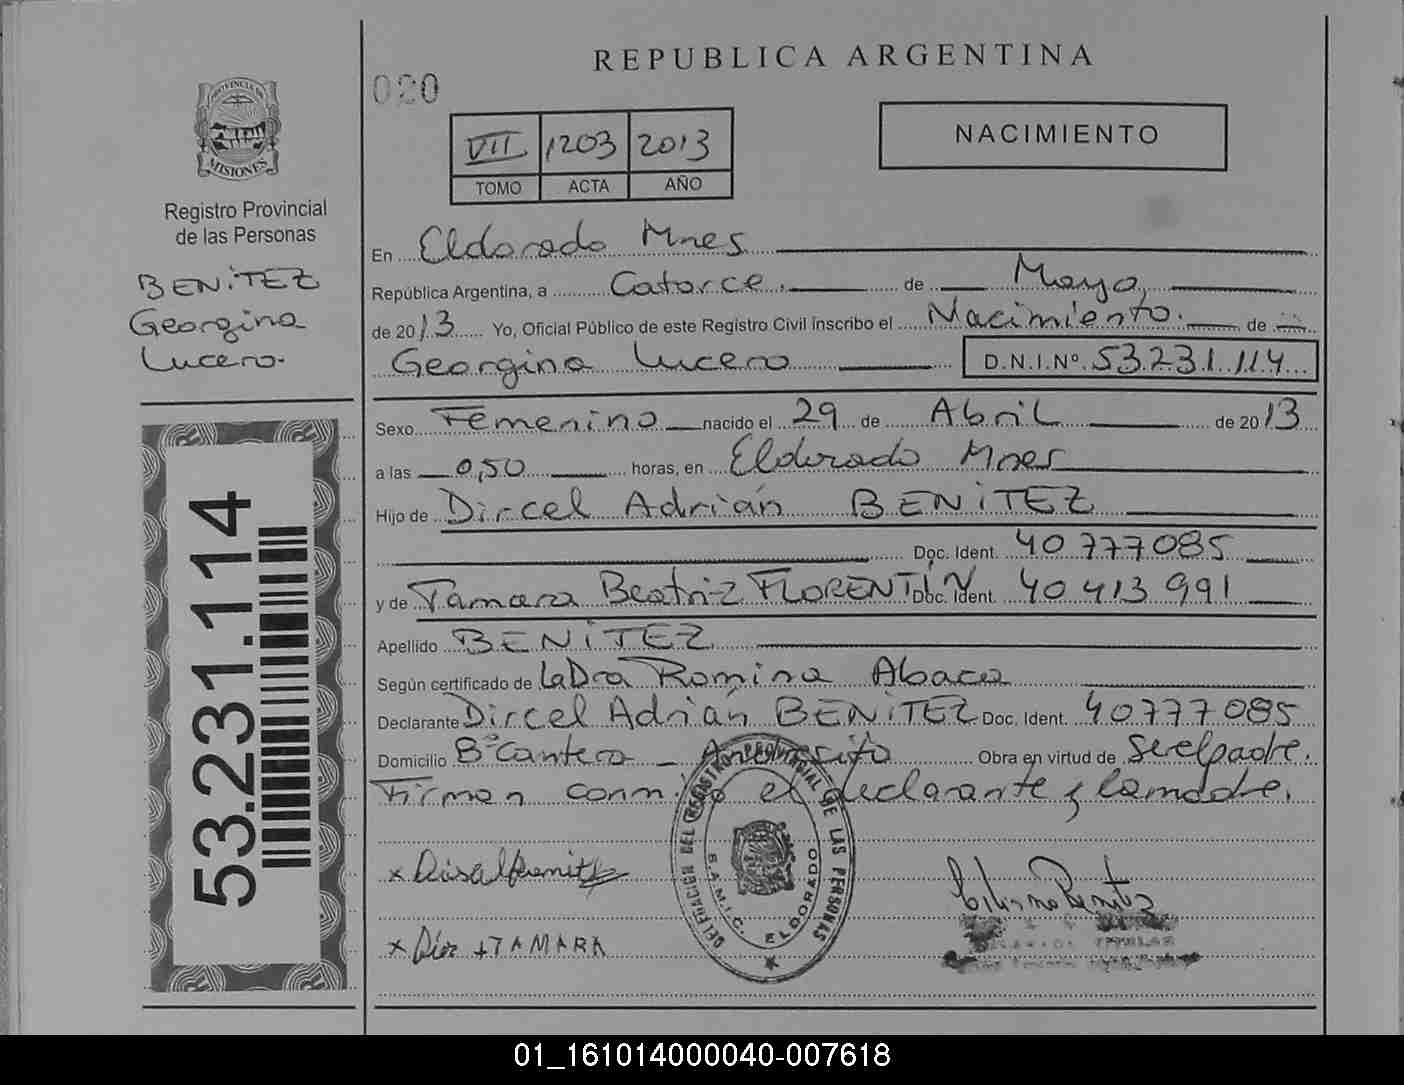 REPUBLICA ARGENTINA
020
PROVINCIA DE
MISIONES
Registro Provincial
de las Personas
BENÍTEZ
Georgina
Lucero.
VII 1203 2013
TOMO ACTA AÑO
NACIMIENTO
En Eldorado Mnes
República Argentina, a Catorce. de Mayo,
de 2013 Yo, Oficial Público de este Registro Civil inscribo el Nacimiento. de
Georgina Lucero D.N.I.Nº 53.231.114
Sexo Femenino nacido el 29 de Abril de 2013
a las 0,50 horas, en Eldorado Mnes
Hijo de Dircel Adrián BENÍTEZ
Doc. Ident. 40777085
y de Tamara Beatriz FLORENTÍN Doc. Ident. 40413991
Apellido BENÍTEZ
Según certificado de La Dra Romina Abaca
Declarante Dircel Adrián BENÍTEZ Doc. Ident. 40777085
Domicilio Bº Cantera - Andresito Obra en virtud de Ser el padre.
Firman conmigo el declarante y la madre.
DELEGACION DEL REGISTRO PROVINCIAL DE LAS PERSONAS
S.A.M.I.C. ELDORADO
x
x TAMARA
TITULAR
53.231.114
01_161014000040-007618